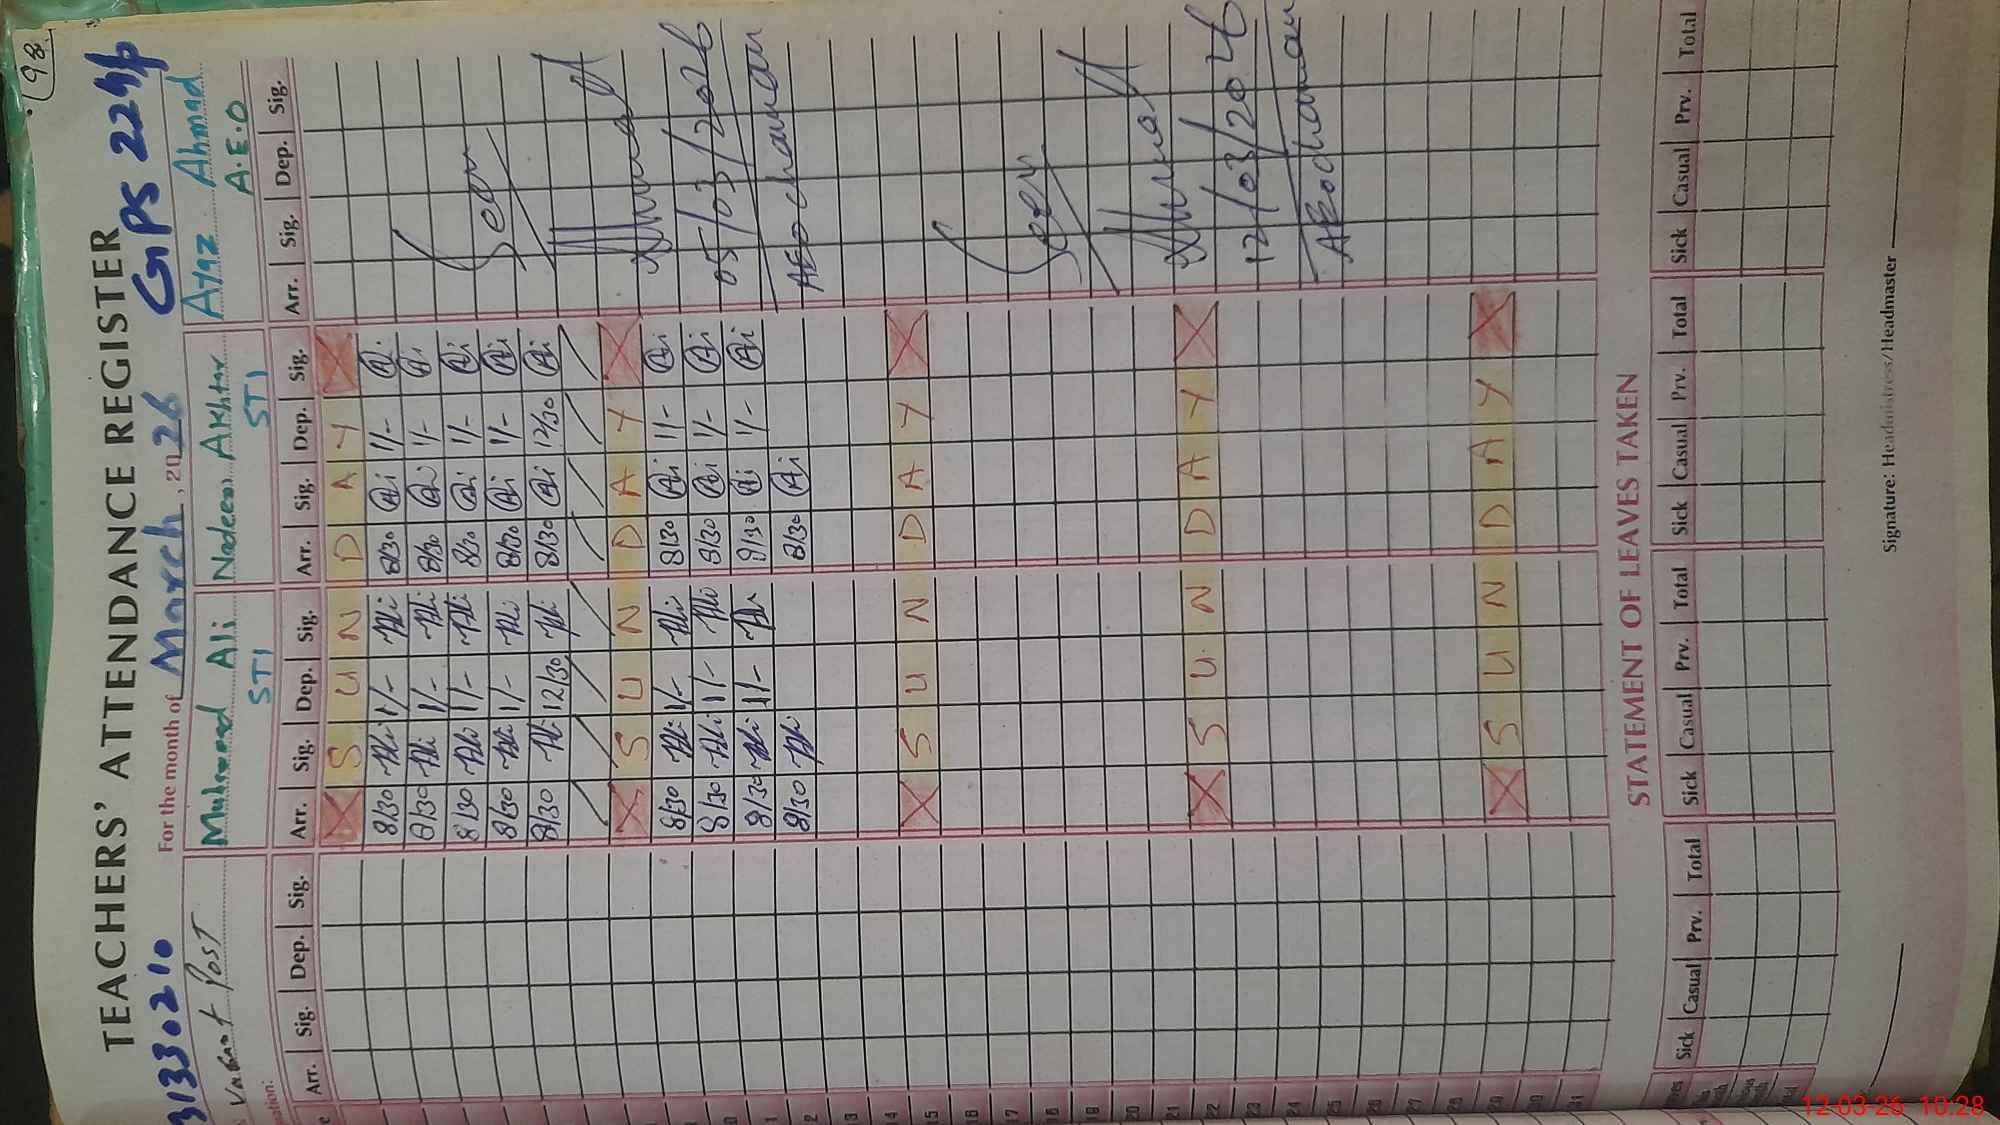 98
TEACHERS' ATTENDANCE REGISTER
31330210 For the month of March, 2026 GPS 224/P
Vacant Post Muhammad Ali Nadeem Akhtar Ayaz Ahmad
STI STI A.E.O
Arr. Sig. Dep. Sig. Arr. Sig. Dep. Sig. Arr. Sig. Dep. Sig. Arr. Sig. Dep. Sig.
S U N D A Y
8/30 Ali 1/- Ali 8/30 Ali 1/- Ali
8/30 Ali 1/- Ali 8/30 Ali 1/- Ali
8/30 Ali 1/- Ali 8/30 Ali 1/- Ali
8/30 Ali 1/- Ali 8/30 Ali 1/- Ali
8/30 Ali 12/30 Ali 8/30 Ali 12/30 Ali
S U N D A Y
8/30 Ali 1/- Ali 8/30 Ali 1/- Ali
8/30 Ali 1/- Ali 8/30 Ali 1/- Ali
8/30 Ali 1/- Ali 8/30 Ali 1/- Ali
8/30 Ali 8/30 Ali
Seen
05/03/2026
AEO chawan
13
14
15 S U N D A Y
16
17
18
19
20
21
22 S U N D A Y
23
24
25
26
27
28
29 S U N D A Y
30
31
Seen
12/03/2026
AEO chawan
STATEMENT OF LEAVES TAKEN
Sick Casual Prv. Total Sick Casual Prv. Total Sick Casual Prv. Total Sick Casual Prv. Total
Signature: Headmistress/Headmaster
12-03-26 10:28